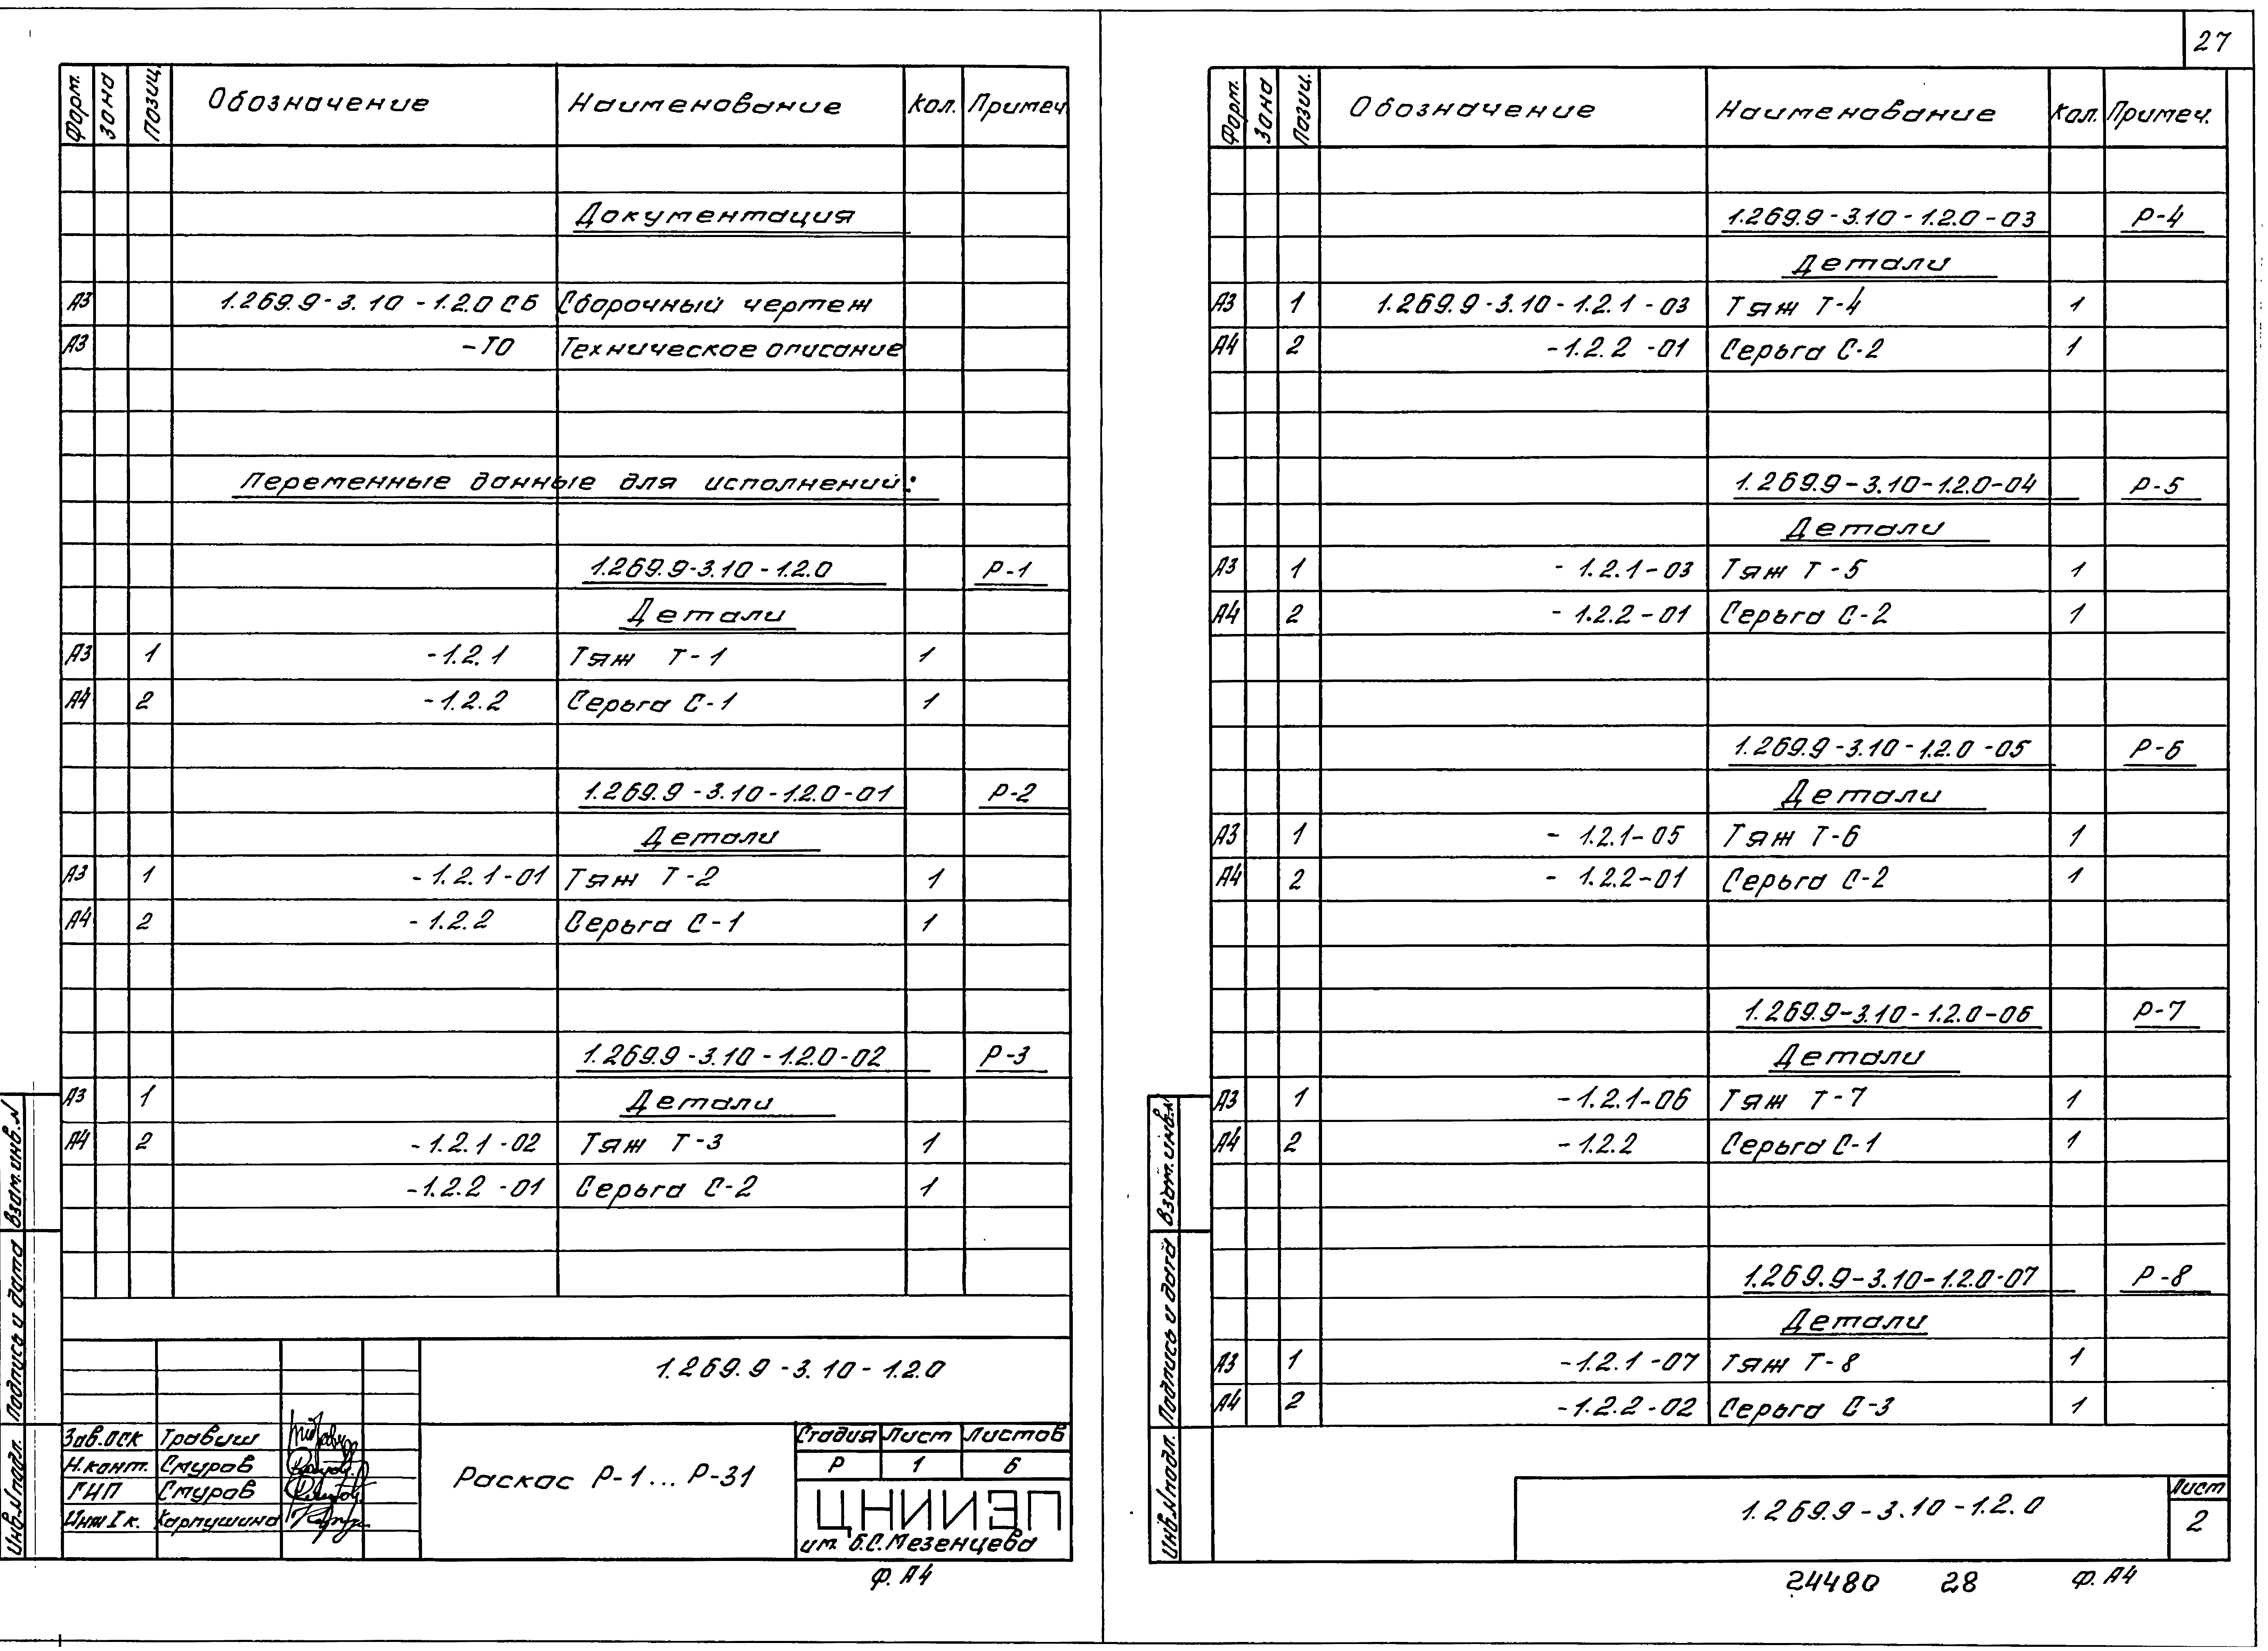 27
Форм. Зона Позиц. Обозначение Наименование Кол. Примеч.
Документация
А3 1.269.9-3.10-1.2.0 СБ Сборочный чертеж
А3 -ТО Техническое описание
Переменные данные для исполнений:
1.269.9-3.10-1.2.0 Р-1
Детали
А3 1 -1.2.1 Тяж Т-1 1
А4 2 -1.2.2 Серьга С-1 1
1.269.9-3.10-1.2.0-01 Р-2
Детали
А3 1 -1.2.1-01 Тяж Т-2 1
А4 2 -1.2.2 Серьга С-1 1
1.269.9-3.10-1.2.0-02 Р-3
А3 1 Детали
А4 2 -1.2.1-02 Тяж Т-3 1
-1.2.2-01 Серьга С-2 1
Взам. инв. N
Подпись и дата
Инв. N подл.
1.269.9-3.10-1.2.0
Зав. ОСК Травиш
Н.конт. Смуров
ГИП Смуров
Инж I к. Карпушина
Раскас Р-1... Р-31
Стадия Лист Листов
Р 1 6
ЦНИИЭП
им. Б.С. Мезенцева
Ф. А4
Форм. Зона Позиц. Обозначение Наименование Кол. Примеч.
1.269.9-3.10-1.2.0-03 Р-4
Детали
А3 1 1.269.9-3.10-1.2.1-03 Тяж Т-4 1
А4 2 -1.2.2-01 Серьга С-2 1
1.269.9-3.10-1.2.0-04 Р-5
Детали
А3 1 -1.2.1-03 Тяж Т-5 1
А4 2 -1.2.2-01 Серьга С-2 1
1.269.9-3.10-1.2.0-05 Р-6
Детали
А3 1 -1.2.1-05 Тяж Т-6 1
А4 2 -1.2.2-01 Серьга С-2 1
1.269.9-3.10-1.2.0-06 Р-7
Детали
А3 1 -1.2.1-06 Тяж Т-7 1
А4 2 -1.2.2 Серьга С-1 1
1.269.9-3.10-1.2.0-07 Р-8
Детали
А3 1 -1.2.1-07 Тяж Т-8 1
А4 2 -1.2.2-02 Серьга С-3 1
Взам. инв. N
Подпись и дата
Инв. N подл.
1.269.9-3.10-1.2.0
Лист
2
24480 28 Ф. А4